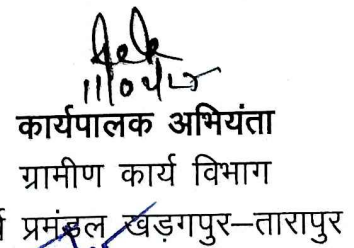 11/04/25
कार्यपालक अभियंता
ग्रामीण कार्य विभाग
प्रमंडल खड़गपुर–तारापुर